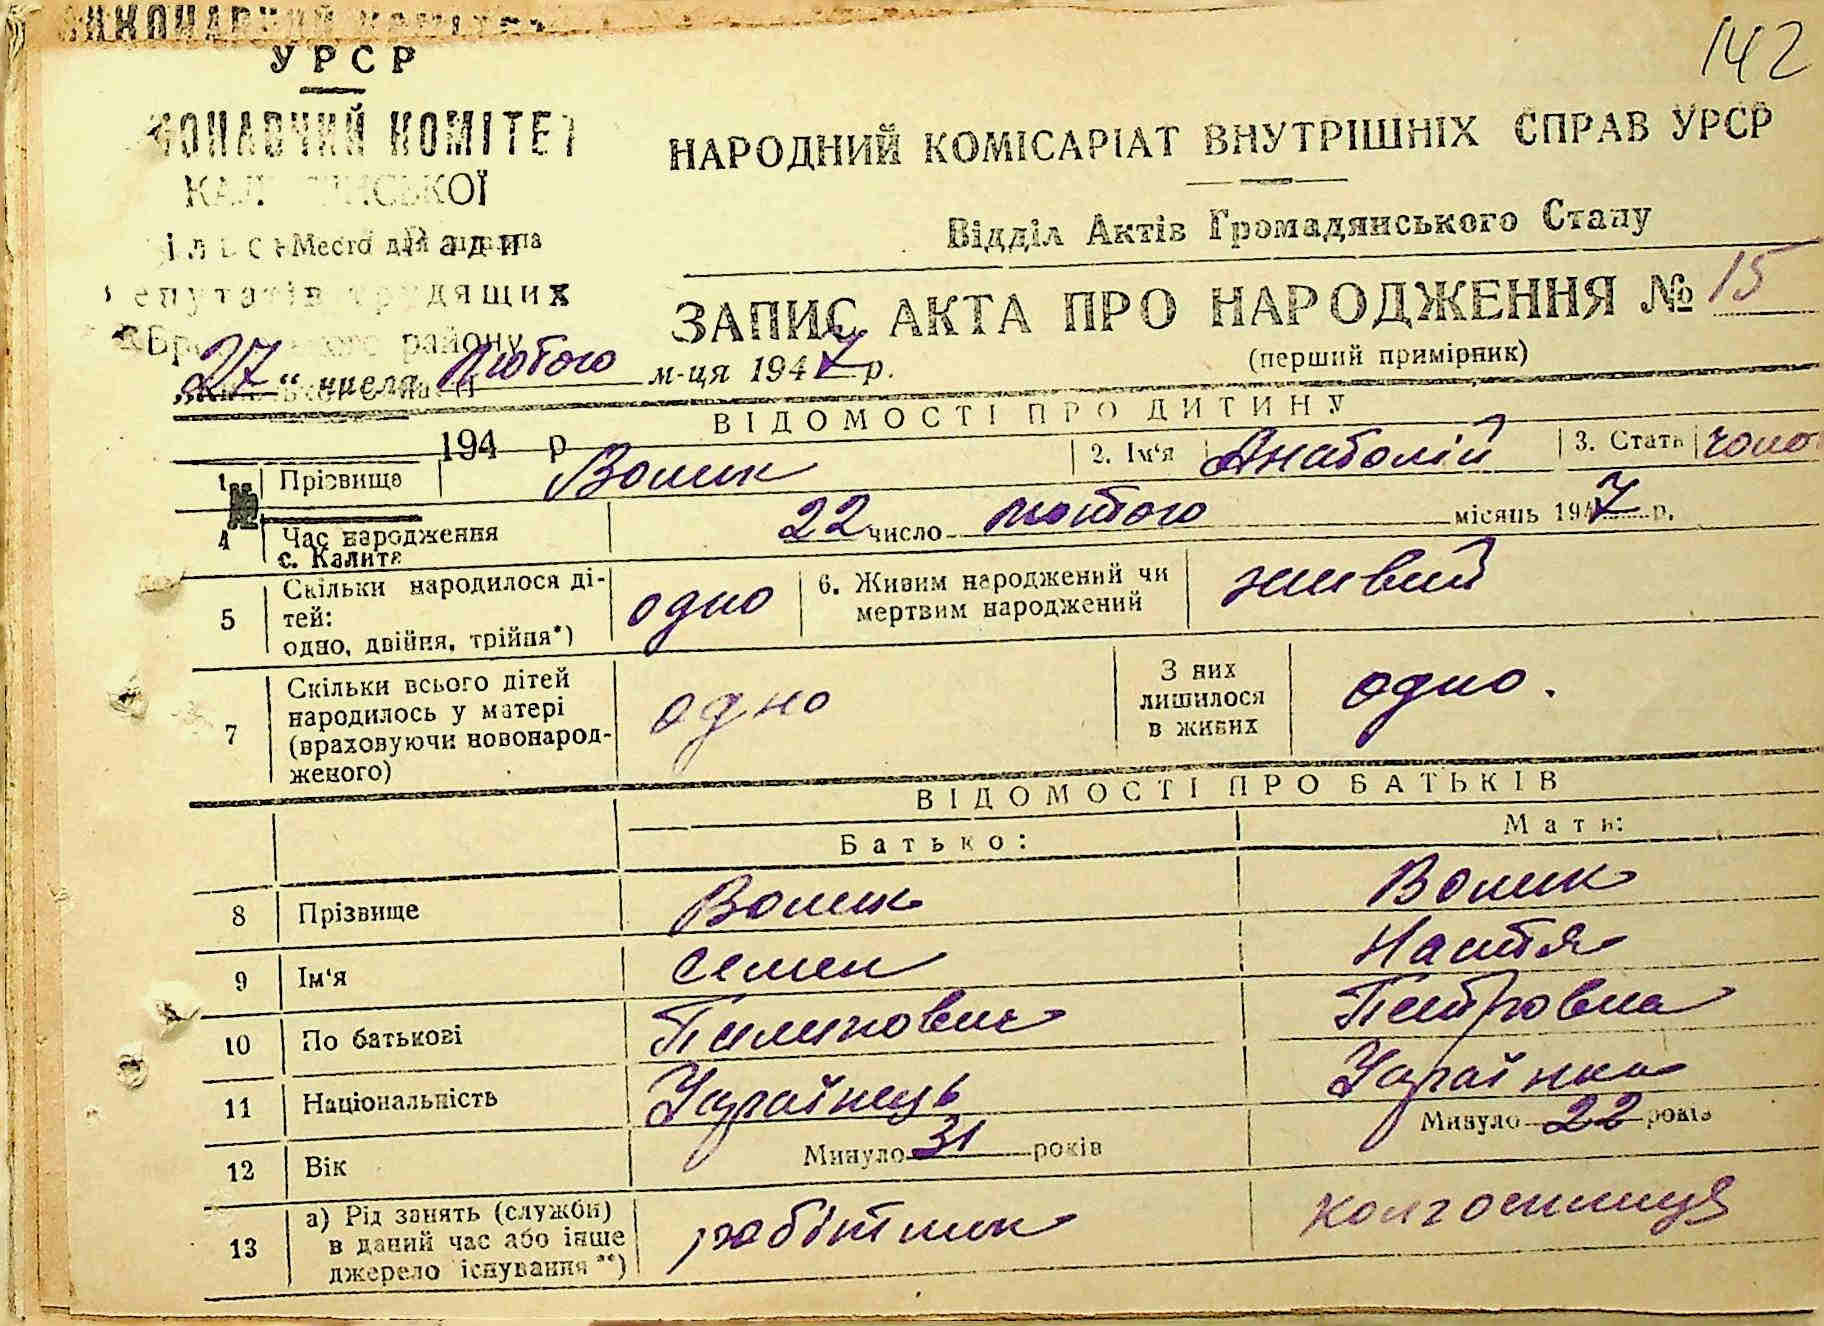 УРСР
142
КОМІТЕТ
НАРОДНИЙ КОМІСАРІАТ ВНУТРІШНІХ СПРАВ УРСР
Відділ Актів Громадянського Стану
Место для штампа
трудящих
району
ЗАПИС АКТА ПРО НАРОДЖЕННЯ № 15
(перший примірник)
„27“ числа лютого м-ця 1947 р.
ВІДОМОСТІ ПРО ДИТИНУ
194 р
1 Прізвище Волик 2. Ім'я Анатолій 3. Стать чоло
№
4 Час народження 22 число лютого місяць 1947 р.
с. Калита
5 Скільки народилося дітей: одно, двійня, трійня*) одно 6. Живим народжений чи мертвим народжений живий
7 Скільки всього дітей народилось у матері (враховуючи новонародженого) одно З них лишилося в живих одно.
ВІДОМОСТІ ПРО БАТЬКІВ
Батько: Мать:
8 Прізвище Волик Волик
9 Ім'я Семен Настя
10 По батькові Пилипович Петровна
11 Національність Українець Українка
12 Вік Минуло 31 років Минуло 22 років
13 а) Рід занять (служби) в даний час або інше джерело існування**) робітник колгоспниця